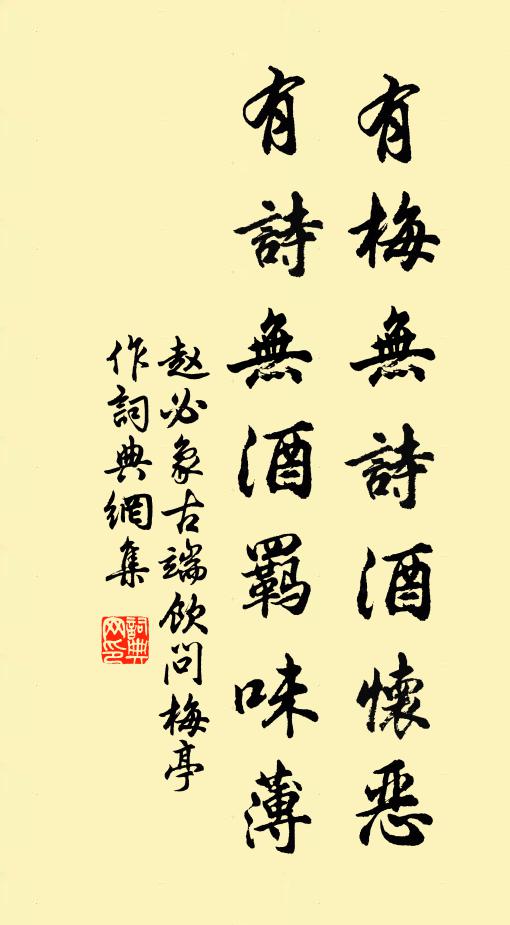 有梅無詩酒懷惡
有詩無酒羈味薄
赵必象古端飲問梅亭
作詞典網集
詞典网印